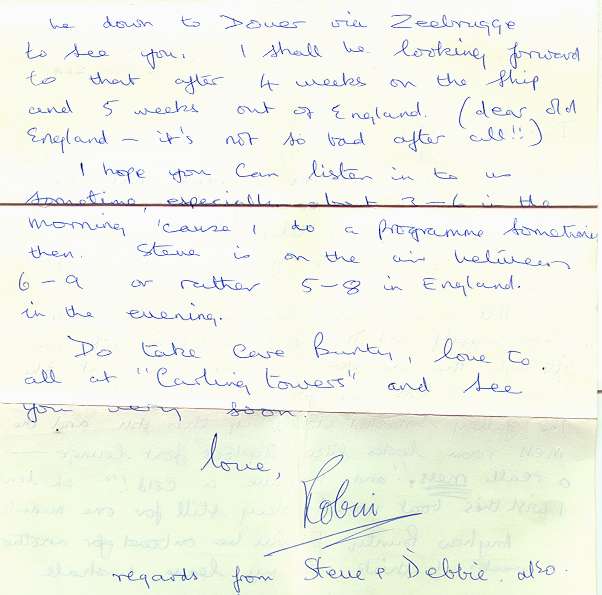 be down to Dover via Zeebrugge
to see you. I shall be looking forward
to that after 4 weeks on the ship
and 5 weeks out of England. (dear old
England – it's not so bad after all!!)
I hope you can listen in to us
sometime, especially about 3–6 in the
morning 'cause I do a programme sometimes
then. Steve is on the air between
6–9 or rather 5–8 in England.
in the evening.
Do take care Bunty, love to
all at "Carling Towers" and see
you very soon.
love,
Robin
regards from Steve & Debbie. also.